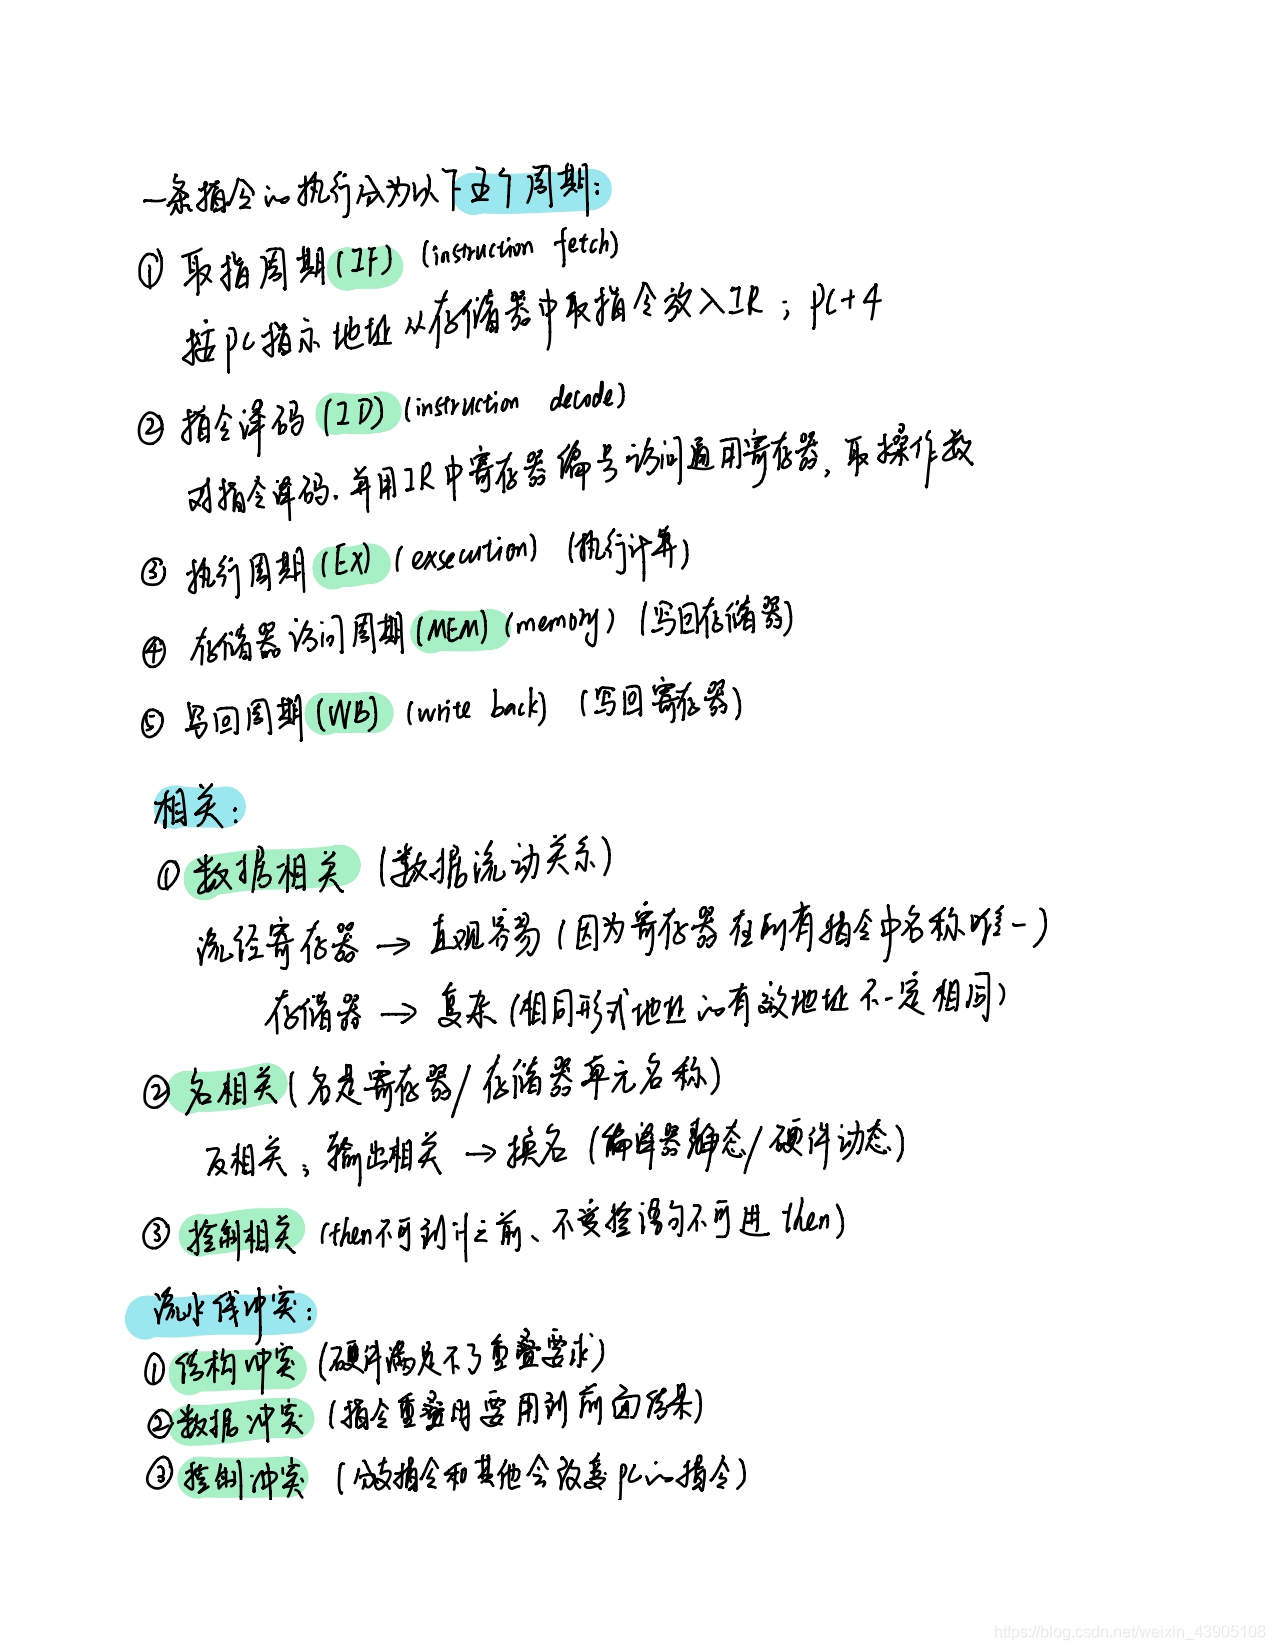 一条指令的执行分为以下五个周期：
① 取指周期(IF) (instruction fetch)
按PC指示地址从存储器中取指令放入IR；PC+4
② 指令译码(ID) (instruction decode)
对指令译码.并用IR中寄存器编号访问通用寄存器,取操作数
③ 执行周期(EX) (exsecution) (执行计算)
④ 存储器访问周期(MEM) (memory) (写回存储器)
⑤ 写回周期(WB) (write back) (写回寄存器)
相关：
① 数据相关 (数据流动关系)
流经寄存器 → 直观容易 (因为寄存器在所有指令中名称唯一)
存储器 → 复杂 (相同形式地址的有效地址不一定相同)
② 名相关 (名是寄存器/存储器单元名称)
反相关；输出相关 → 换名 (编译器静态/硬件动态)
③ 控制相关 (then不可到if之前、不受控语句不可进then)
流水线冲突：
① 结构冲突 (硬件满足不了重叠要求)
② 数据冲突 (指令重叠时要用到前面结果)
③ 控制冲突 (分支指令和其他会改变PC的指令)
https://blog.csdn.net/weixin_43905108